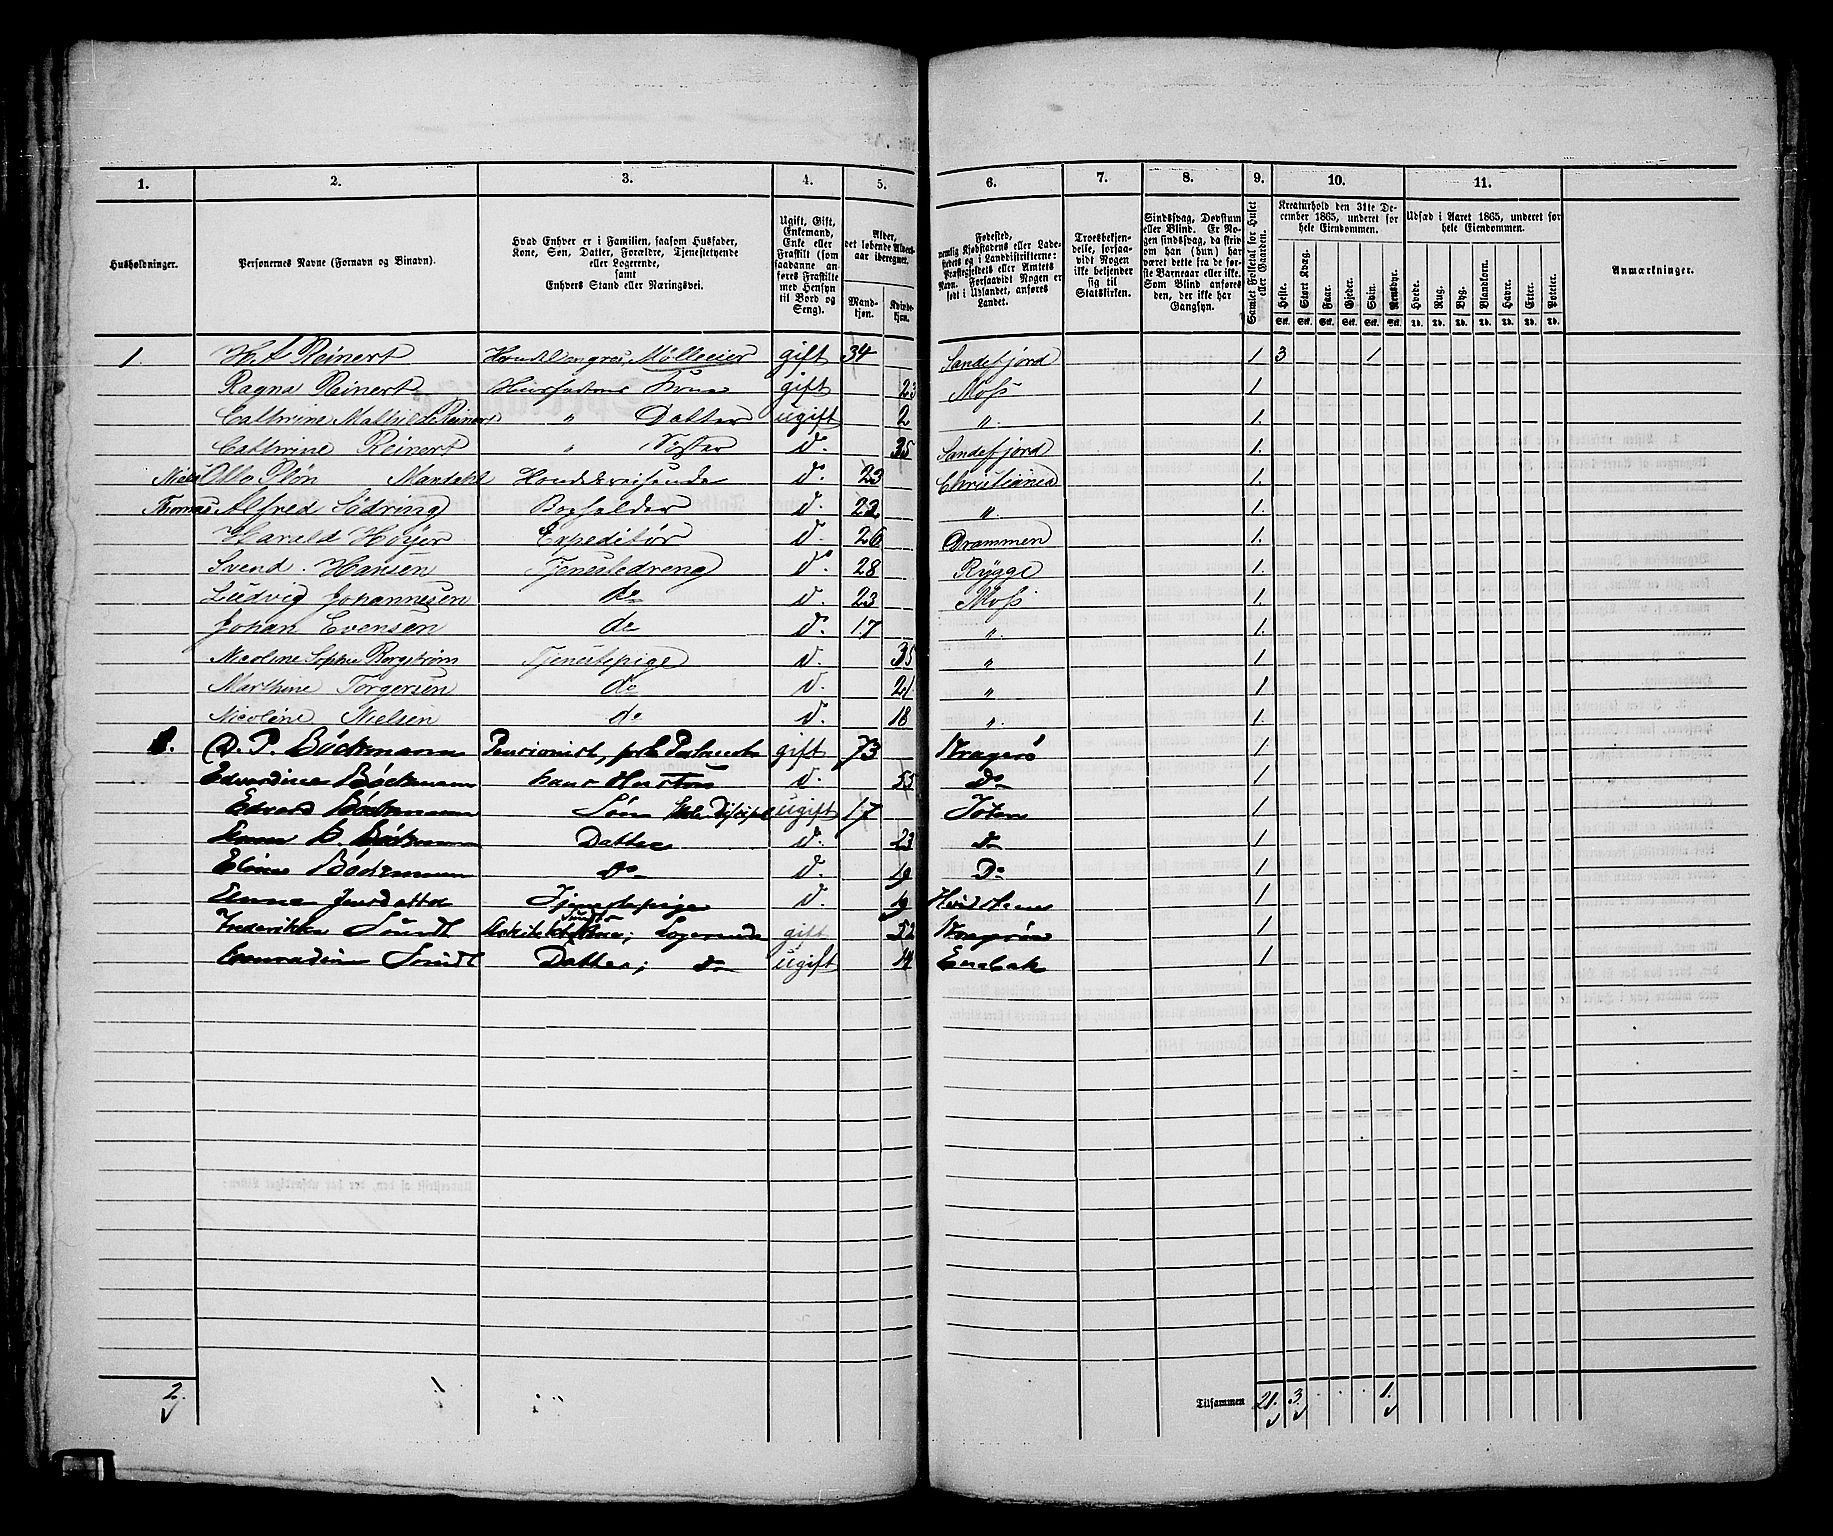 1. 2. 3. 4. 5. 6. 7. 8. 9. 10. 11.
Husholdninger.
Personernes Navne (Fornavn og Binavn).
Hvad Enhver er i Familien, saasom Husfader,
Kone, Søn, Datter, Forældre, Tjenestetyende
eller Logerende,
samt
Enhvers Stand eller Næringsvei.
Ugift, Gift,
Enkemand,
Enke eller
Fraskilt (som
saadanne an-
føres Fraskilte
med Hensyn
til Bord og
Seng).
Alder,
det løbende Alders-
aar iberegnet.
Mand-
kjøn.
Kvinde-
kjøn.
Fødested,
nemlig Kjøbstadens eller Lade-
stedets og i Landdistrikterne:
Præstegjeldets eller Amtets
Navn. Forsaavidt Nogen er
født i Udlandet, anføres
Landet.
Troesbekjen-
delse, forsaa-
vidt Nogen
ikke bekjender
sig til
Statskirken.
Sindssvag, Døvstum
eller Blind. Er No-
gen sindssvag, da skriv
om han (hun) har
været dette fra de før-
ste Barneaar eller ei.
Som Blind anføres
den, der ikke har
Gangsyn.
Samlet Folketal for Huset
eller Gaarden.
Kreaturhold den 31te De-
cember 1865, underet for
hele Eiendommen.
Heste. Stort Kvæg. Faar. Gjeder. Sviin. Rensdyr.
Stk. Stk. Stk. Stk. Stk. Stk.
Udsæd i Aaret 1865, underet for
hele Eiendommen.
Hvede. Rug. Byg. Blandkorn. Havre. Erter. Poteter.
Td. Td. Td. Td. Td. Td. Td.
Anmærkninger.
1. H. A Reinert Handl. en gros, Mølleeier gift 34 Sandefjord 1 3 1
Ragna Reinert Husfaderns Kone gift 23 Moss 1
Cathrine Mathilde Reinert " Datter ugift 2 " 1.
Cathrine Reinert " Søster d. 35 Sandefjord 1.
Niels Otto Pløn Mandahl Handelsreisende d. 23 Christiania 1.
Thomas Alfred Sødring Bogholder d. 22 " 1.
Harald Høyer Expeditør d. 26 Drammen 1.
Svend Hansen Tjenestedreng d. 28 Rygge 1
Ludvig Johannesen do d. 23 Moss 1.
Johan Evensen do d. 17 " 1.
Nicoline Sophie Borgstrøm Tjenestepige d. 35 " 1.
Marthine Torgersen do d. 21 " 1
Nicoline Nielsen do d. 18 " 1.
1. P. Böckmann Pensionist, gift 73 Kragerö 1
Edvardine Böckmann hans Hustru d. 55 Do 1
Edvard Böckmann Sön ugift 17 Toten 1
Böckmann Datter d. 23 do 1
Eline Böckmann do d. 19 Do 1
Anna Jensdatter Tjenestepige d. 19 Hvidsten 1
Frederikke Sundt Logerende gift 52 Kragerö 1
Conradine Sundt Datter; do ugift 14 Enebak 1
2. Tilsammen 21. 3. 1.